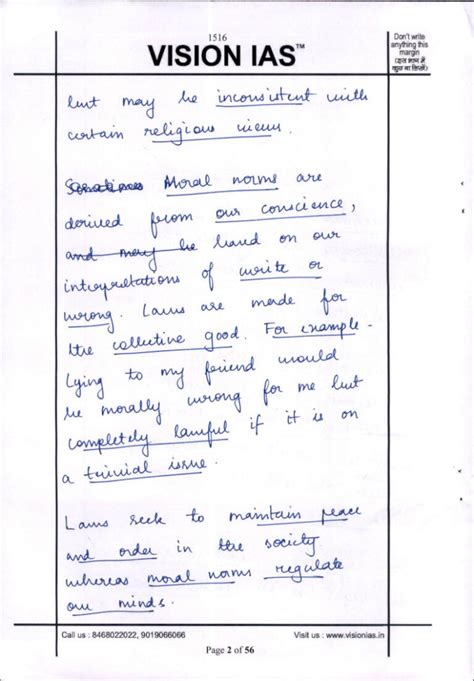 1516
VISION IAS™
Don't write
anything this
margin
(इस भाग में
कुछ ना लिखें)
but may be inconsistent with
certain religious views.
Sometimes Moral norms are
derived from our conscience,
and may be based on our
interpretations of write or
wrong. Laws are made for
the collective good. For example -
Lying to my friend would
be morally wrong for me but
completely lawful if it is on
a trivial issue.
Laws seek to maintain peace
and order in the society
whereas moral norms regulate
our minds.
Call us : 8468022022, 9019066066
Visit us : www.visionias.in
Page 2 of 56